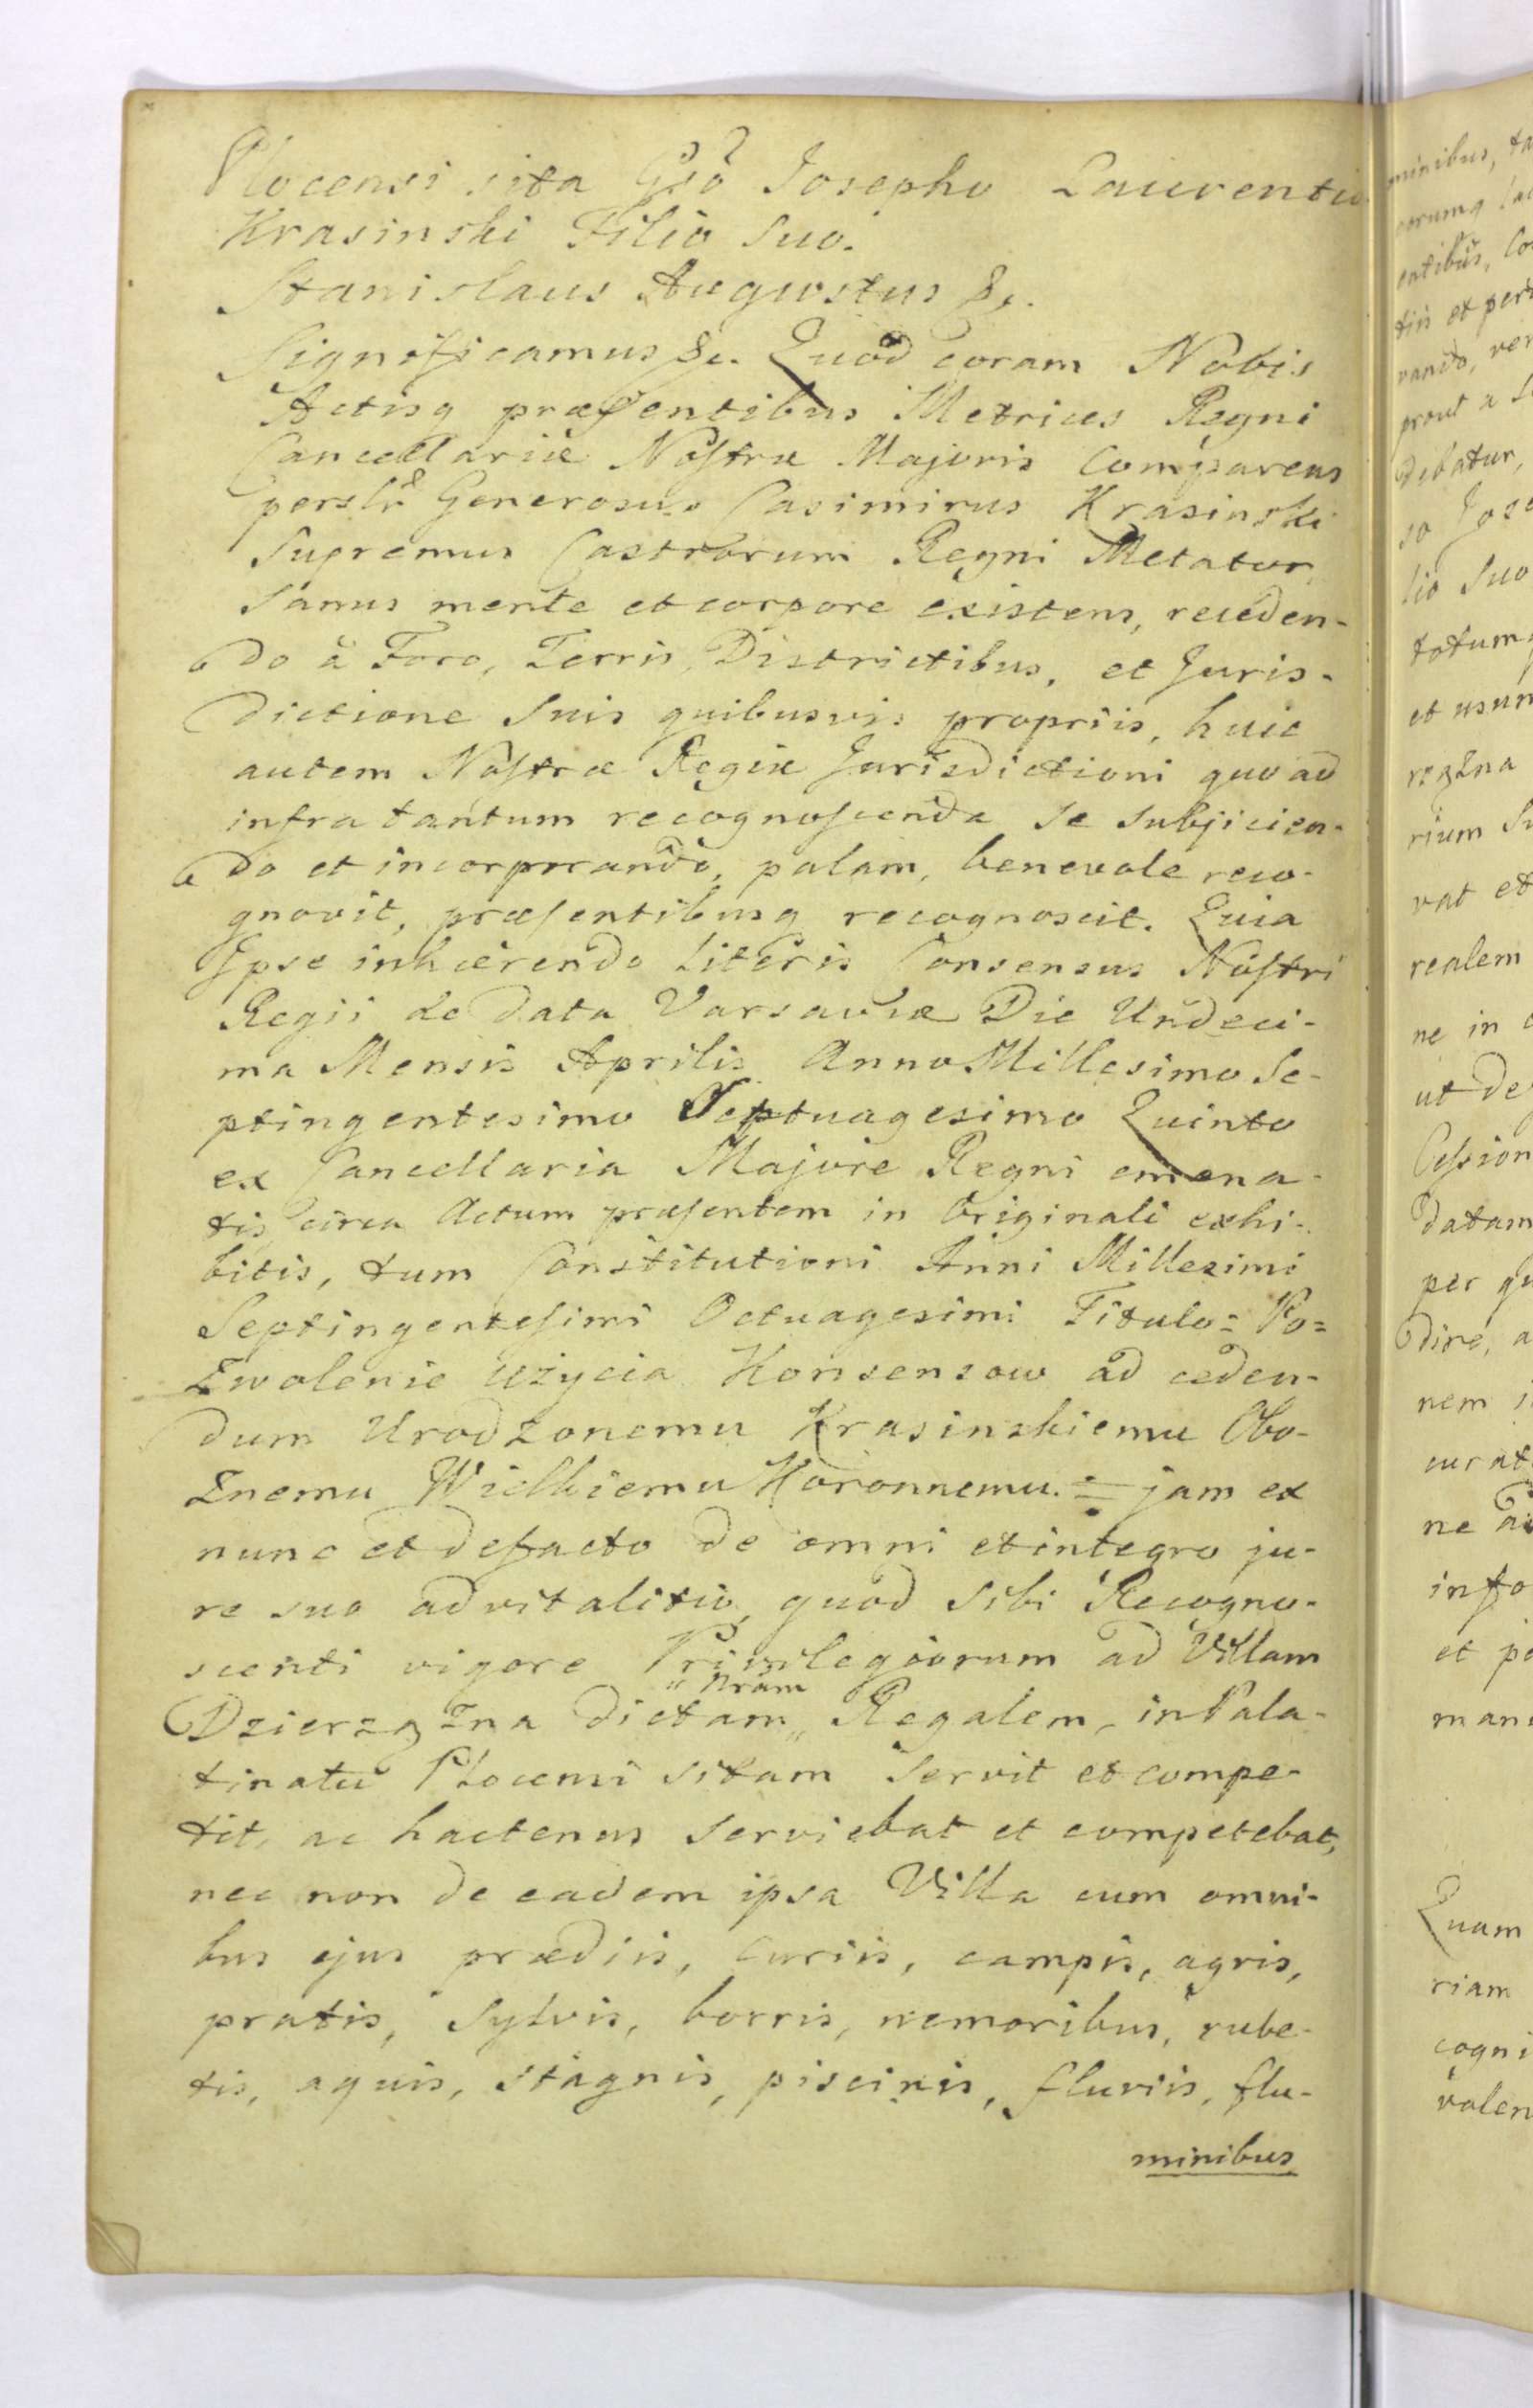 Plocensi sita Gso Josepho Laurentio
Krasinski Filio Suo.
Stanislaus Augustus &c.
Significamus &c. Quod coram Nobis
Actisq præsentibus Metrices Regni
Cancellariæ Nostræ Majoris Comparens
perslr Generosus Casimirus Krasinski
Supremus Castrorum Regni Metator
Sanus mente et corpore existens, receden-
do à Foro, Terris, Districtibus, et Juris-
dictione Suis quibusvis propriis, huic
autem Nostræ Regiæ Jurisdictioni quo ad
infra tantum recognoscenda se subjicien-
do et incorporando, palam, benevole reco-
gnovit, præsentibusq recognoscit. Quia
Ipse inhærendo Literis Consensus Nostri
Regii de data Varsaviæ Die Undeci-
ma Mensis Aprilis Anno Millesimo Se-
ptingentesimo Septuagesimo Quinto
ex Cancellaria Majore Regni emana-
tis, circa Actum præsentem in Originali exhi-
bitis, tum Constitutioni Anni Millezimi
Septingentesimi Octuagesimi Titulo = Po=
Zwolenie użycia Konsensow ad ceden-
dum Urodzonemu Krasinskiemu Obo-
Znemu Wielkiemu Koronnemu. = jam ex
nunc et defacto de omni et integro ju-
re suo advitalitio, quod Sibi Recogno-
scenti vigore Privilegiorum ad Villam
Dzierzązna dictam „ Regalem, in Pala-
„ Nram
tinatu Plocensi sitam servit et compe-
tit, ac hactenus serviebat et competebat,
nec non de eadem ipsa Villa cum omni-
bus ejus prædiis, curiis, campis, agris,
pratis, Sylvis, borris, nemoribus, rube-
tis, aquis, stagnis, piscinis, fluviis, flu-
minibus
minibus, ta
entibus, Co
tis et per
vando, ver
prout a
debatur,
so Jose
lio Suo
totum
et usum
rium Su
vat et
realem
ne in
ut de
Cession
datam
per qu
dine, a
nem i
curat
info
et po
man
Quam
riam
cogni
valen